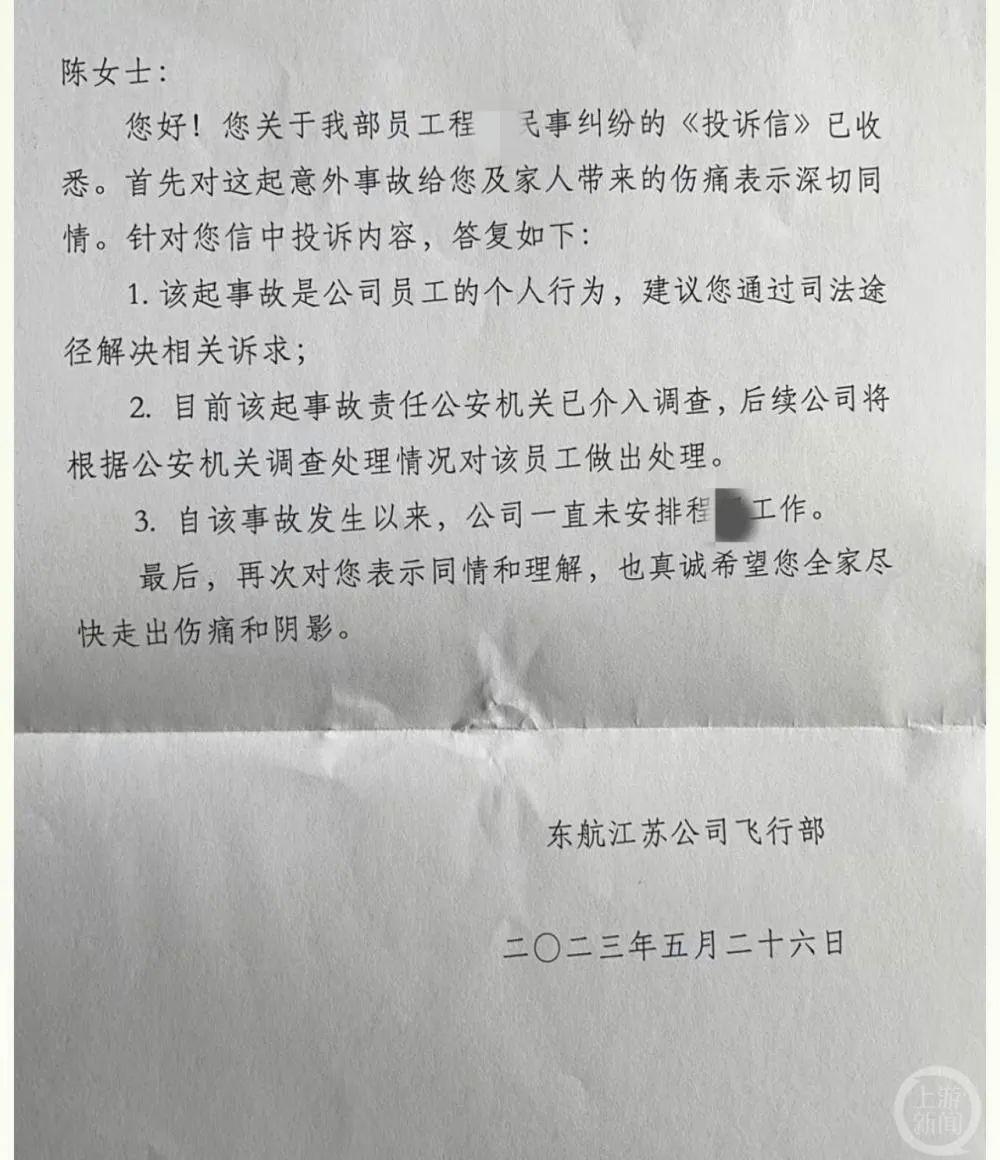 陈女士：
您好！您关于我部员工程 民事纠纷的《投诉信》已收
悉。首先对这起意外事故给您及家人带来的伤痛表示深切同
情。针对您信中投诉内容，答复如下：
1. 该起事故是公司员工的个人行为，建议您通过司法途
径解决相关诉求；
2. 目前该起事故责任公安机关已介入调查，后续公司将
根据公安机关调查处理情况对该员工做出处理。
3. 自该事故发生以来，公司一直未安排程 工作。
最后，再次对您表示同情和理解，也真诚希望您全家尽
快走出伤痛和阴影。
东航江苏公司飞行部
二〇二三年五月二十六日
上游
新闻